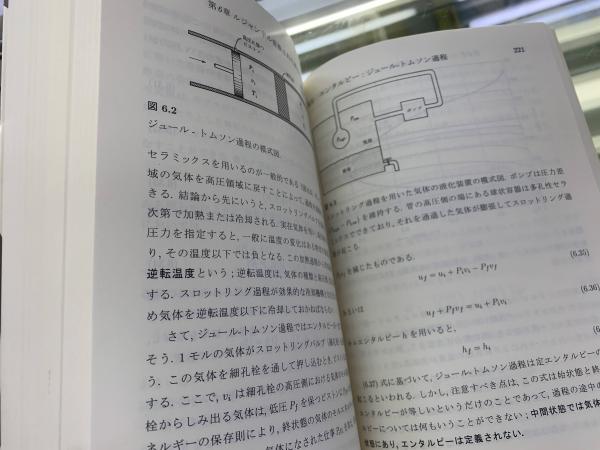 第6章 ルジャンドル変換
高圧側の
ピストン
図 6.2
ジュール - トムソン過程の模式図.
セラミックスを用いるのが一般的である
域の気体を高圧領域に戻すことによって,
きる. 結論から先にいうと, スロットリング
次第で加熱または冷却される. 実在気体を
圧力を指定すると, 一般に温度の変化はある
り, その温度以下では負となる. この加熱過程から
逆転温度という ; 逆転温度は, 気体の種類と
する. スロットリング過程が効果的な
め気体を逆転温度以下に冷却しておかねばならない
さて, ジュール-トムソン過程ではエンタルピー
そう. 1 モルの気体がスロットリングバルブ
う. この気体を細孔栓を通して押し込むとき,
する. ここで, vi は細孔栓の高圧側における気体の
栓からしみ出る気体は, 低圧 Pf を保つピストンに
ネルギーの保存則により, 終状態の気体の
気体になされた仕事
エンタルピー ; ジュール-トムソン過程
221
ポンプ
Phigh
Plow
気体
液体
スロットリング過程を用いた気体の液化装置の模式図. ポンプは圧力差
− Plow) を維持する. 管の高圧側の端にある球状容器は多孔性セラ
ミックスでできており, それを通過した気体が膨張してスロットリング過
程が起こる.
を減じたものである.
uf = ui + Pivi − Pfvf (6.35)
あるいは
uf + Pfvf = ui + Pivi (6.36)
エンタルピー h を用いると,
hf = hi (6.
(6.37) 式に基づいて, ジュール-トムソン過程は定エンタルピーの
起こるといわれる. しかし, 注意すべき点は, この式は始状態と終
エンタルピーが等しいというだけのことであって, 過程の途中の
ルピーについては何もいうことができない ; 中間状態では気体
状態にあり, エンタルピーは定義されない.